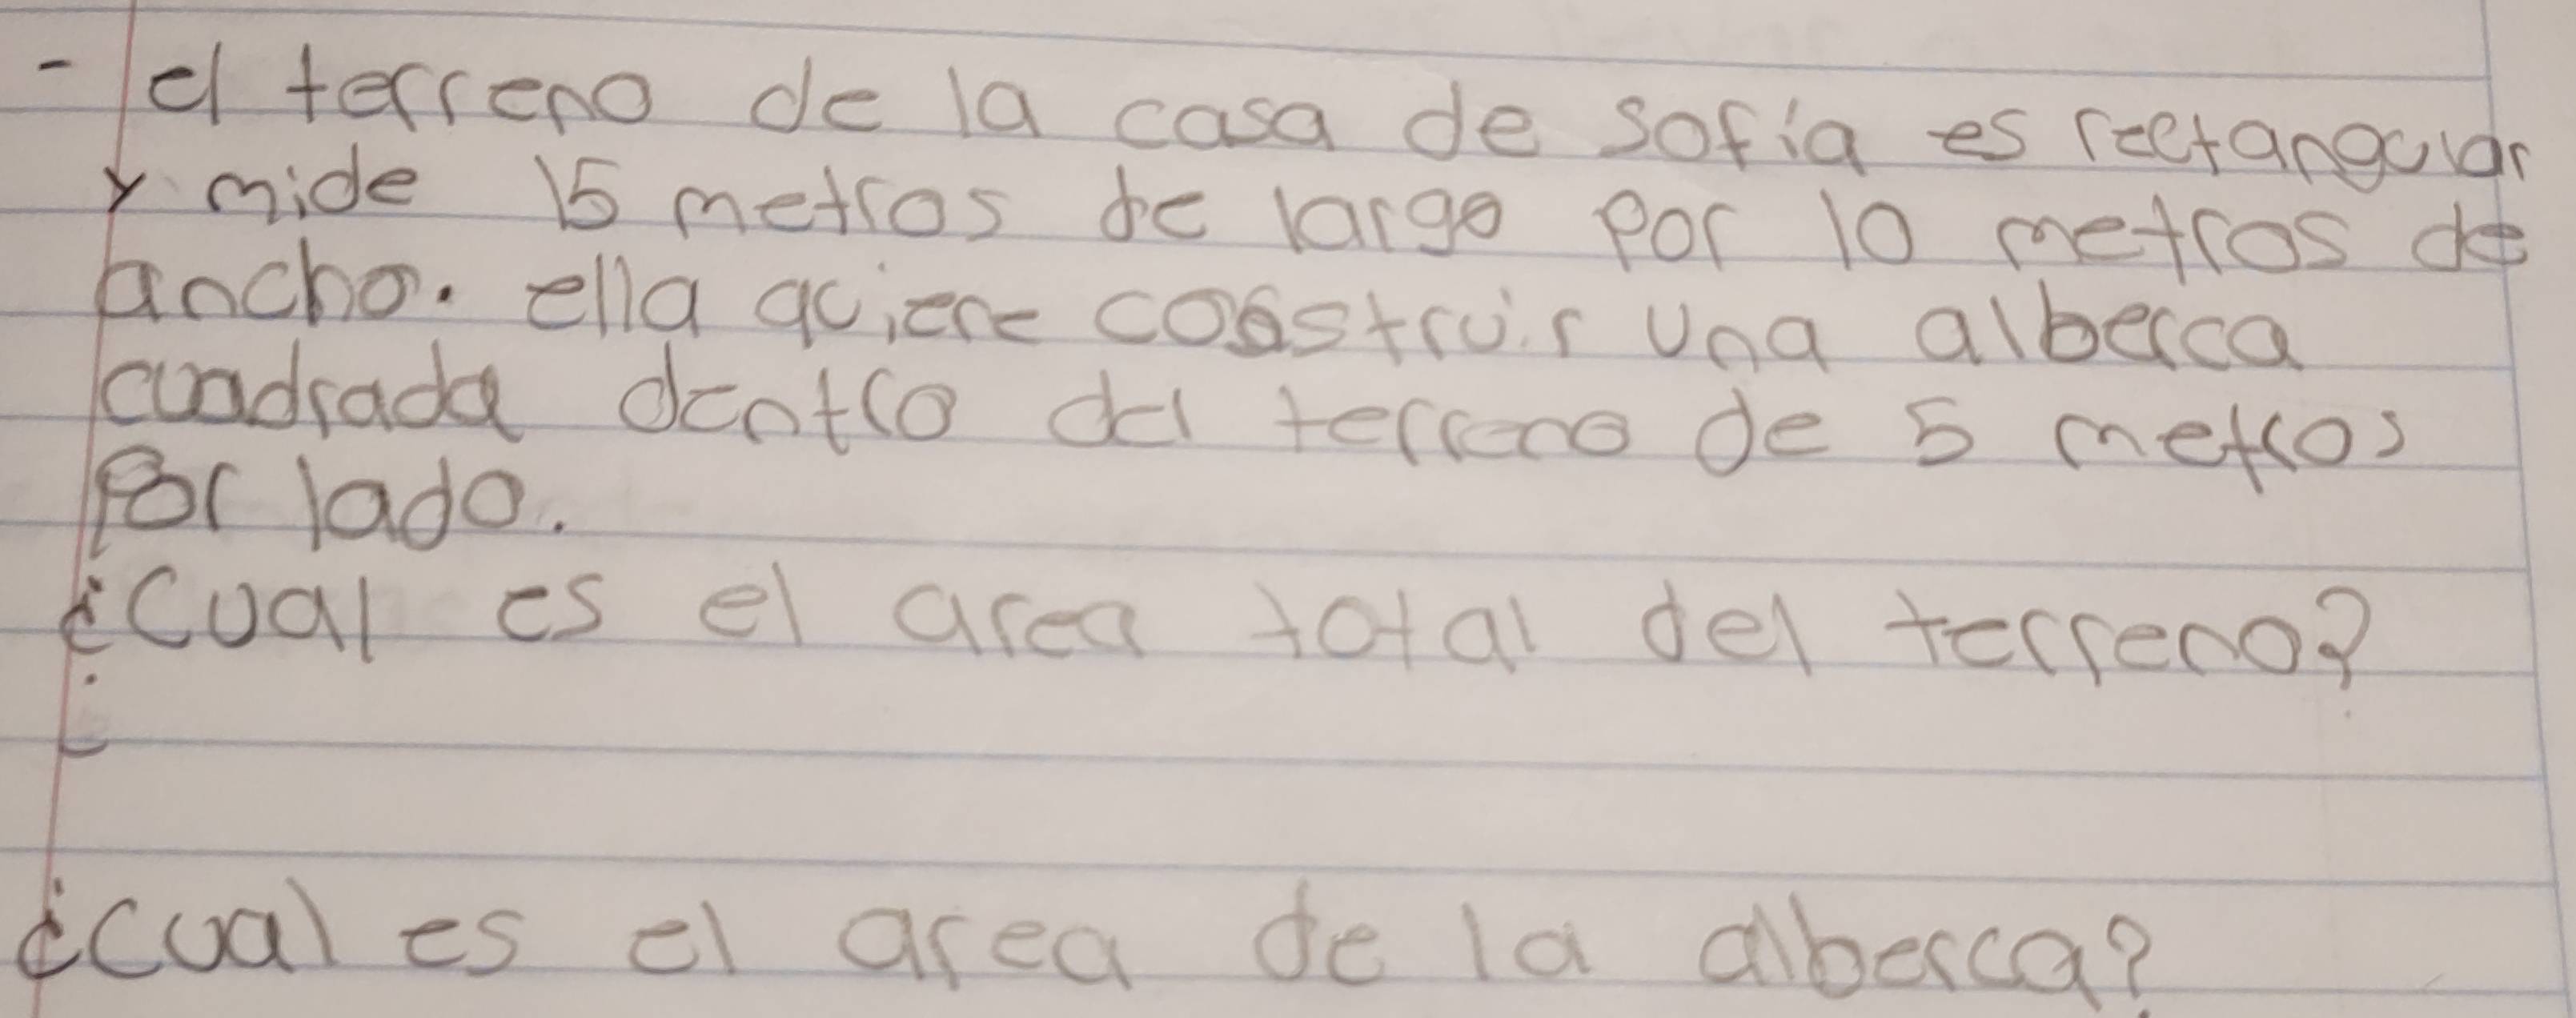 - el terreno de la casa de sofía es rectangular
y mide 15 metros de largo por 10 metros de
ancho. ella quiere construir una alberca
cuadrada dentro del terreno de 5 metros
por lado.
¿Cual es el area total del terreno?
¿cual es el area de la alberca?